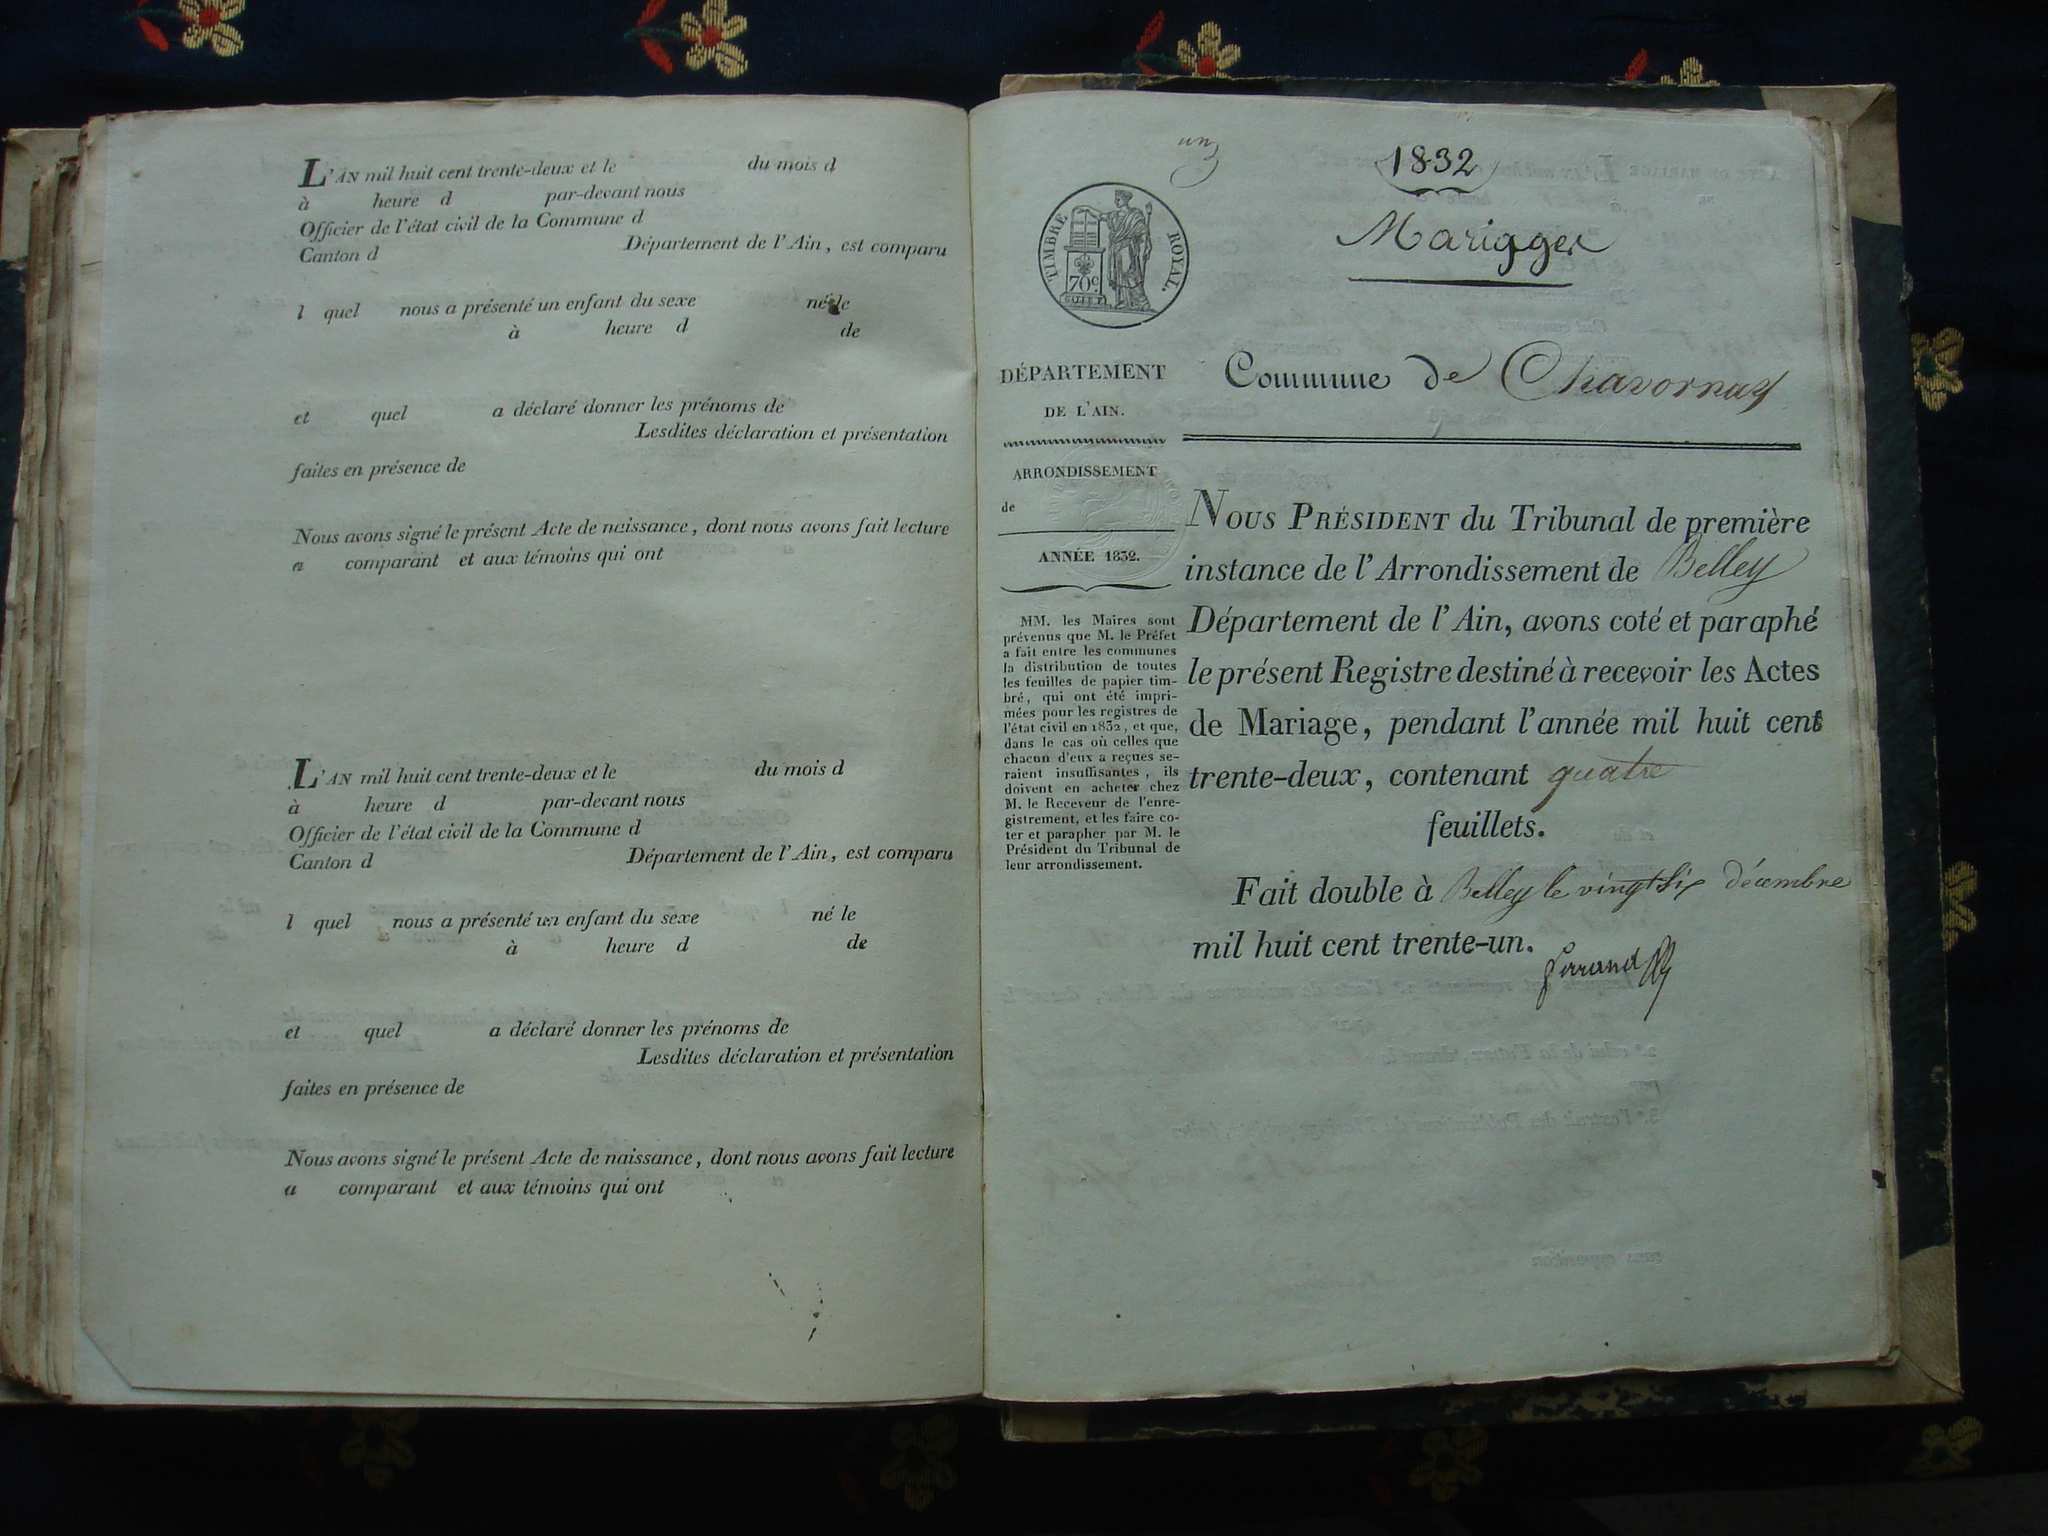 L'AN mil huit cent trente-deux et le du mois d
à heure d par-devant nous
Officier de l'état civil de la Commune d
Canton d Département de l'Ain, est comparu
l quel nous a présenté un enfant du sexe né le
à heure d de
et quel a déclaré donner les prénoms de
Lesdites déclaration et présentation
faites en présence de
Nous avons signé le présent Acte de naissance, dont nous avons fait lecture
a comparant et aux témoins qui ont
L'AN mil huit cent trente-deux et le du mois d
à heure d par-devant nous
Officier de l'état civil de la Commune d
Canton d Département de l'Ain, est comparu
l quel nous a présenté un enfant du sexe né le
à heure d de
et quel a déclaré donner les prénoms de
Lesdites déclaration et présentation
faites en présence de
Nous avons signé le présent Acte de naissance, dont nous avons fait lecture
a comparant et aux témoins qui ont
un
1832
Mariages
TIMBRE ROYAL.
70c
Commune de Chavornay
DÉPARTEMENT
DE L'AIN.
ARRONDISSEMENT
de
ANNÉE 1832.
MM. les Maires sont
prévenus que M. le Préfet
a fait entre les communes
la distribution de toutes
les feuilles de papier tim-
bré, qui ont été impri-
mées pour les registres de
l'état civil en 1832, et que,
dans le cas où celles que
chacun d'eux a reçues se-
raient insuffisantes, ils
doivent en acheter chez
M. le Receveur de l'enre-
gistrement, et les faire co-
ter et parapher par M. le
Président du Tribunal de
leur arrondissement.
NOUS PRÉSIDENT du Tribunal de première
instance de l'Arrondissement de Belley
Département de l'Ain, avons coté et paraphé
le présent Registre destiné à recevoir les Actes
de Mariage, pendant l'année mil huit cent
trente-deux, contenant quatre
feuillets.
Fait double à Belley le vingt six décembre
mil huit cent trente-un.